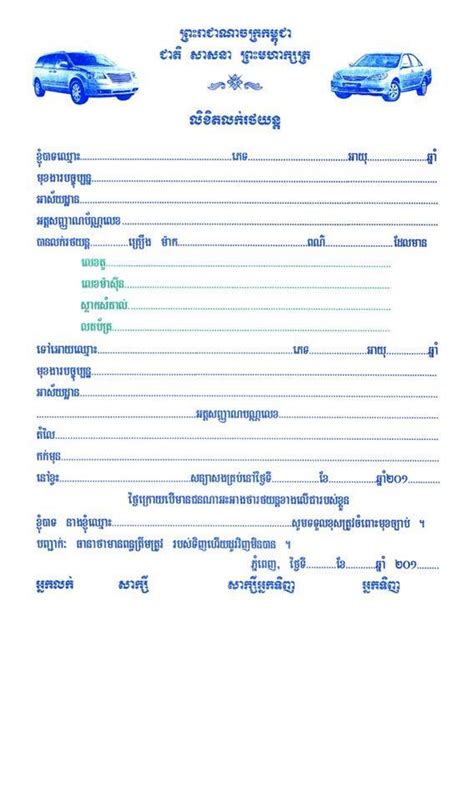 ព្រះរាជាណាចក្រកម្ពុជា
ជាតិ សាសនា ព្រះមហាក្សត្រ
លិខិតលក់រថយន្ត
ខ្ញុំបាទឈ្មោះ........................ភេទ................អាយុ............ឆ្នាំ
មុខងារបច្ចុប្បន្ន........................
អាស័យដ្ឋាន........................
អត្តសញ្ញាណប័ណ្ណលេខ........................
បានលក់រថយន្ត............គ្រឿង ម៉ាក................ពណ៌............ដែលមាន
លេខតួ........................
លេខម៉ាស៊ីន........................
ស្លាកសំគាល់........................
លតប័ត្រ........................
ទៅអោយឈ្មោះ........................ភេទ............អាយុ............ឆ្នាំ
មុខងារបច្ចុប្បន្ន........................
អាស័យដ្ឋាន........................
........................អត្តសញ្ញាណបណ្ណលេខ........................
តំលៃ........................
កក់មុន........................
នៅខ្វះ........................សន្យាសងគ្រប់នៅថ្ងៃទី............ខែ............ឆ្នាំ២០១............
ថ្ងៃក្រោយបើមានជនណាអះអាងថារថយន្តខាងលើជារបស់ខ្លួន
ខ្ញុំបាទ នាងខ្ញុំឈ្មោះ........................សូមទទួលខុសត្រូវចំពោះមុខច្បាប់ ។
បញ្ជាក់: ធានាថាមានពន្ធត្រឹមត្រូវ របស់ទិញហើយដូរវិញមិនបាន ។
ភ្នំពេញ, ថ្ងៃទី............ខែ............ឆ្នាំ ២០១............
អ្នកលក់ សាក្សី សាក្សីអ្នកទិញ អ្នកទិញ